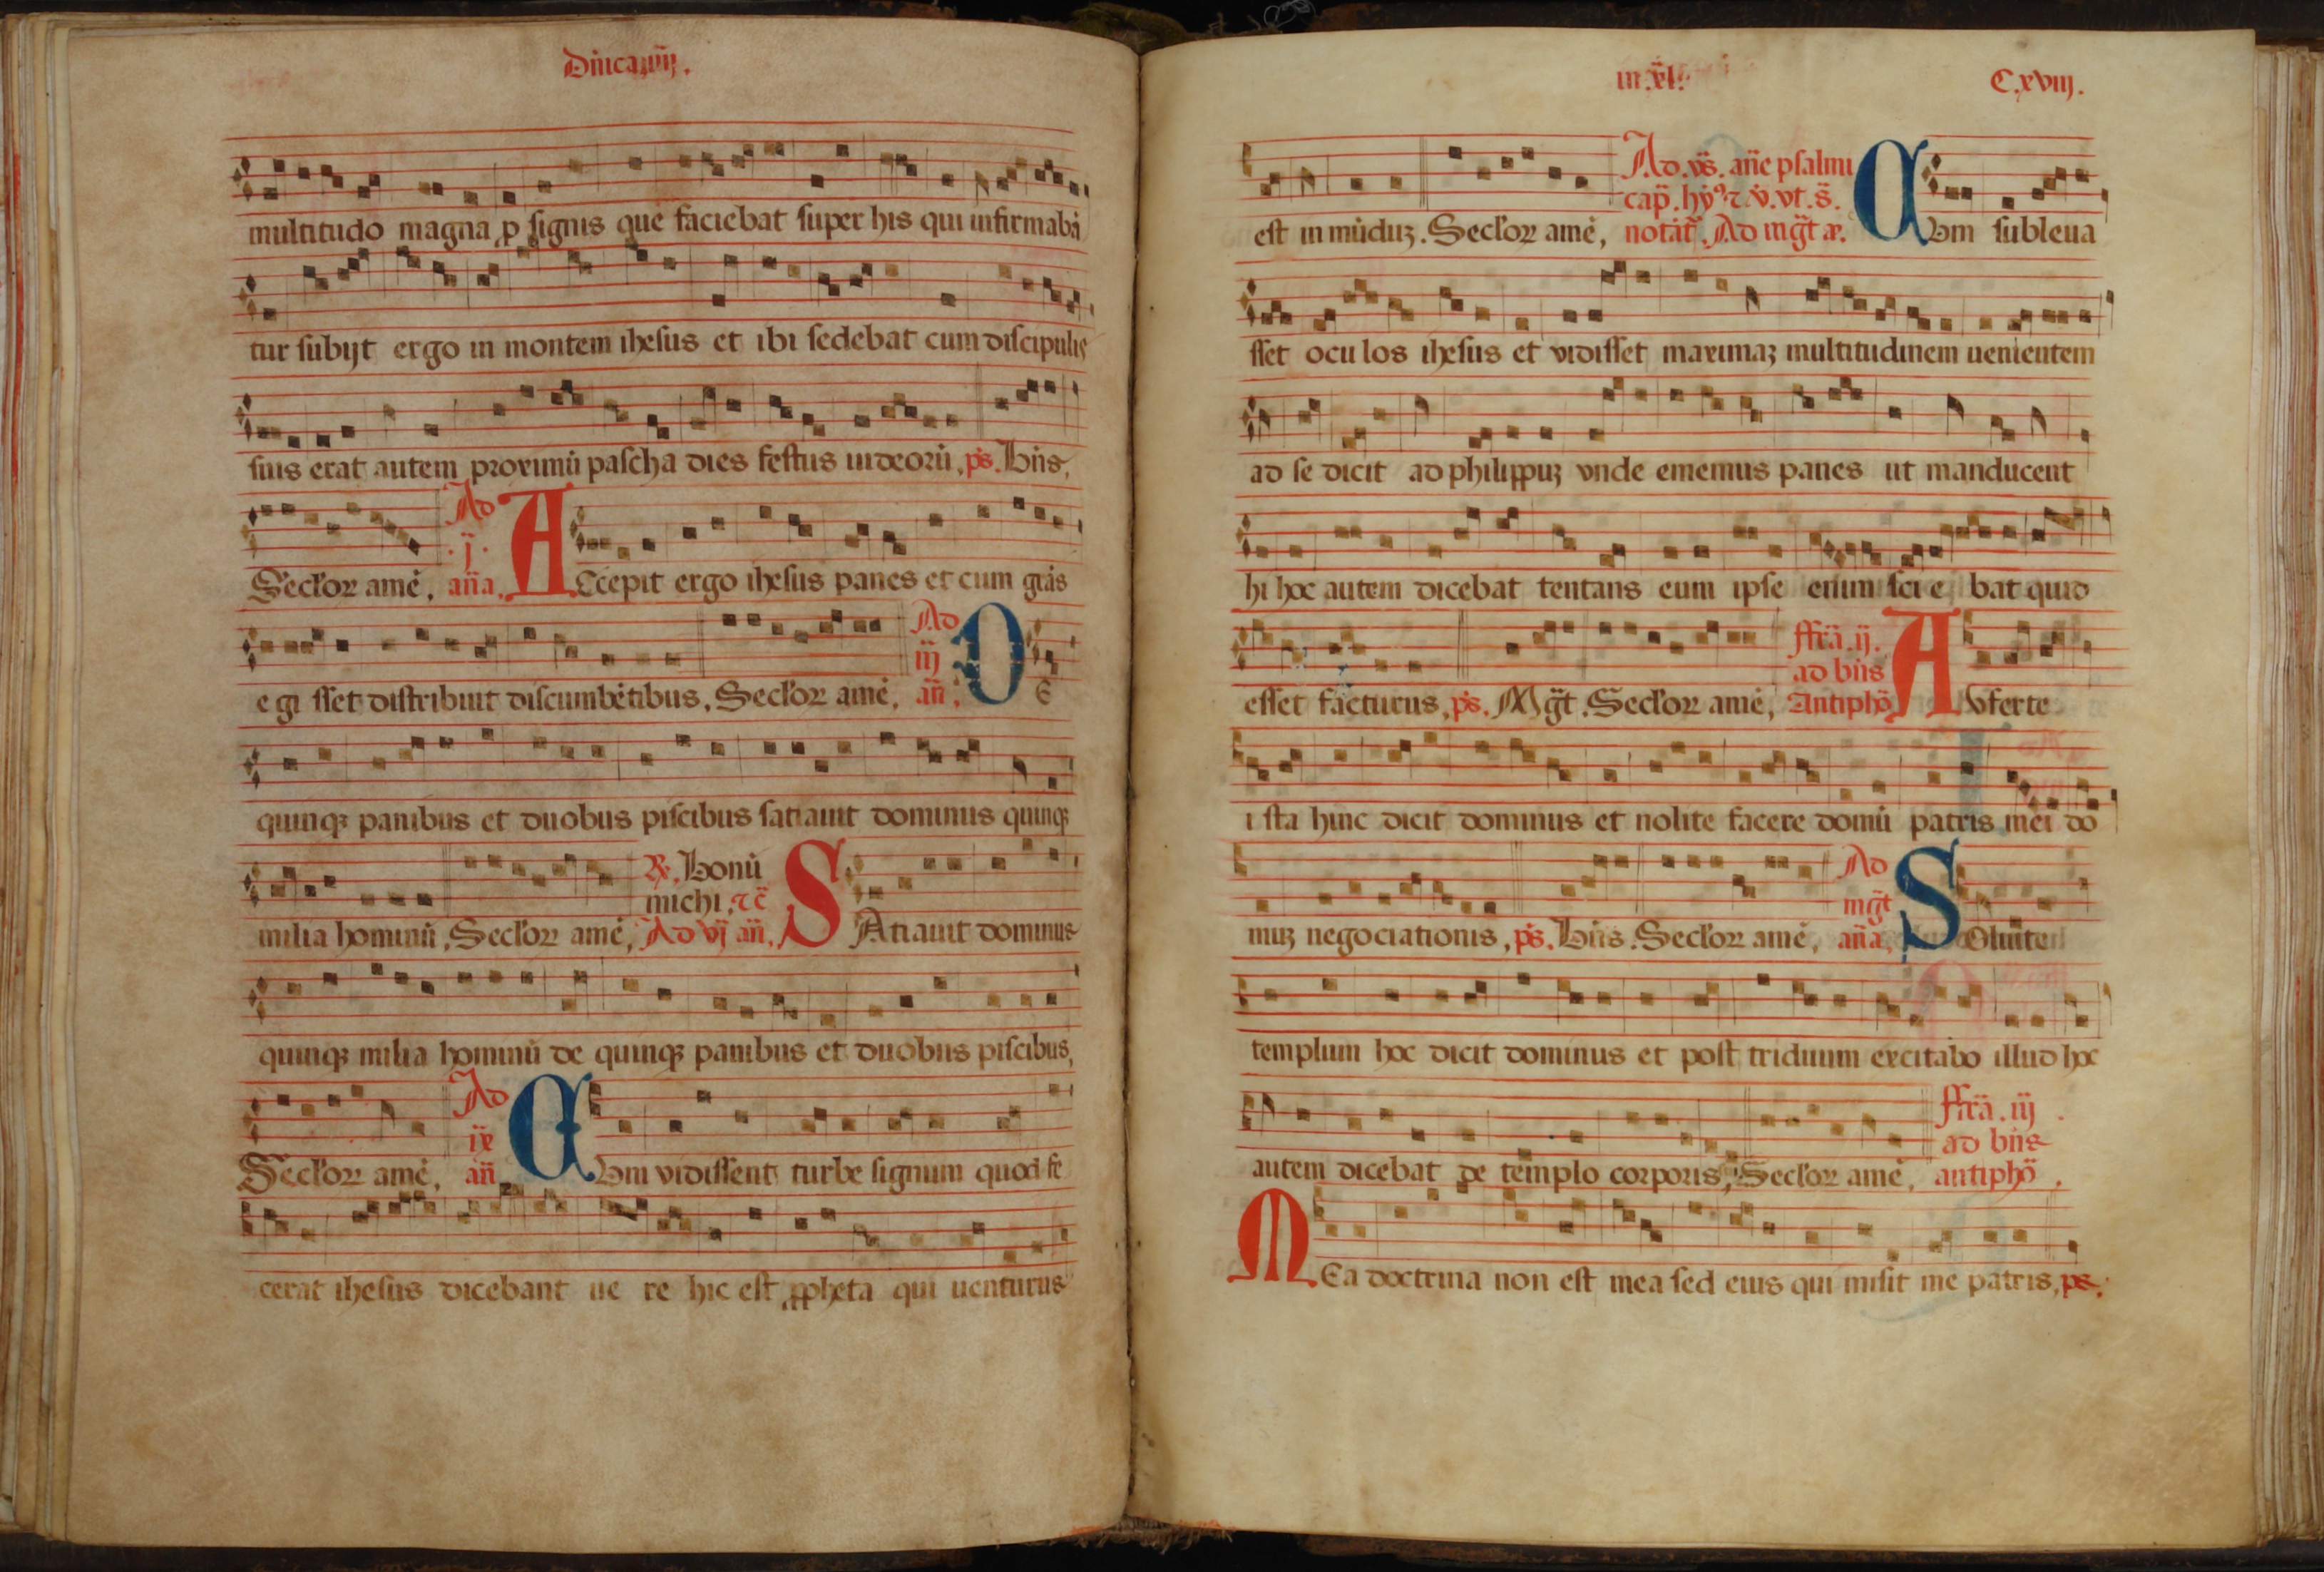 Dñica iiij.
multitudo magna ꝓ signis que faciebat super his qui infirmabā
tur subijt ergo in montem ihesus et ibi sedebat cum discipulis
suis erat autem proximū pascha dies festus iudeorū, ps. Bñs,
Ad
Secłoꝝ amē, .j. aña, ACcepit ergo ihesus panes et cum gr̃as
Ad
iij
egisset distribuit discumbētibus, Secłoꝝ amē, añ, DE
quinqꝫ panibus et duobus piscibus satiauit dominus quinqꝫ
℟. Bonū
michi, ⁊c̃
milia hominū, Secłoꝝ amē, Ad vj añ, SAtiauit dominus
quinqꝫ milia hominū de quinqꝫ panibus et duobus piscibus,
Ad
ix
Secłoꝝ amē, añ CUm vidissent turbe signum quod fe
cerat ihesus dicebant uere hic est ꝓpheta qui uenturus
in .xl.
C.xviij.
Ad .vs̃. añe psalmi
cap̃. hỹ⁹ ⁊ .v̓. vt .s̃.
est in mūduꝫ. Secłoꝝ amē, notāt̃, Ad mg̃t æ. CUm subleua
sset oculos ihesus et vidisset maximaꝫ multitudinem uenientem
ad se dicit ad philippuꝫ vnde ememus panes ut manducent
hi hoc autem dicebat tentans eum ipse enim sciebat quid
ffr̃a .ij.
ad bñs
esset facturus, ps. Mg̃t. Secłoꝝ amē, Antiphõ AUferte
ista hinc dicit dominus et nolite facere domū patris mei do
Ad
mg̃t
muꝫ negociationis, ps. Bñs. Secłoꝝ amē, aña, SOluite
templum hoc dicit dominus et post triduum excitabo illud hoc
ffr̃a .iij
ad bñs
autem dicebat de templo corporis, Secłoꝝ amē, antiphõ.
MEa doctrina non est mea sed eius qui misit me patris, ps.